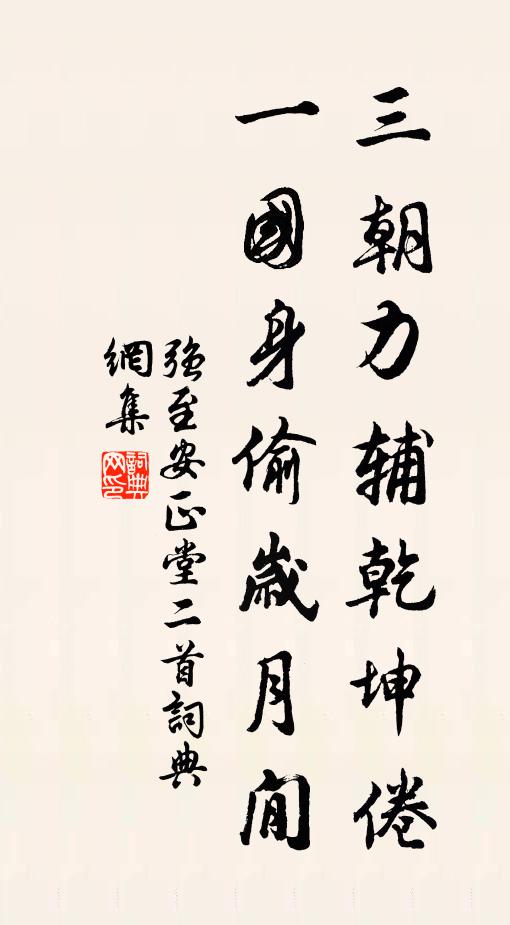 三朝力辅乾坤倦
一國身偷歲月閒
强至安正堂二首詞典
網集
詞典網印